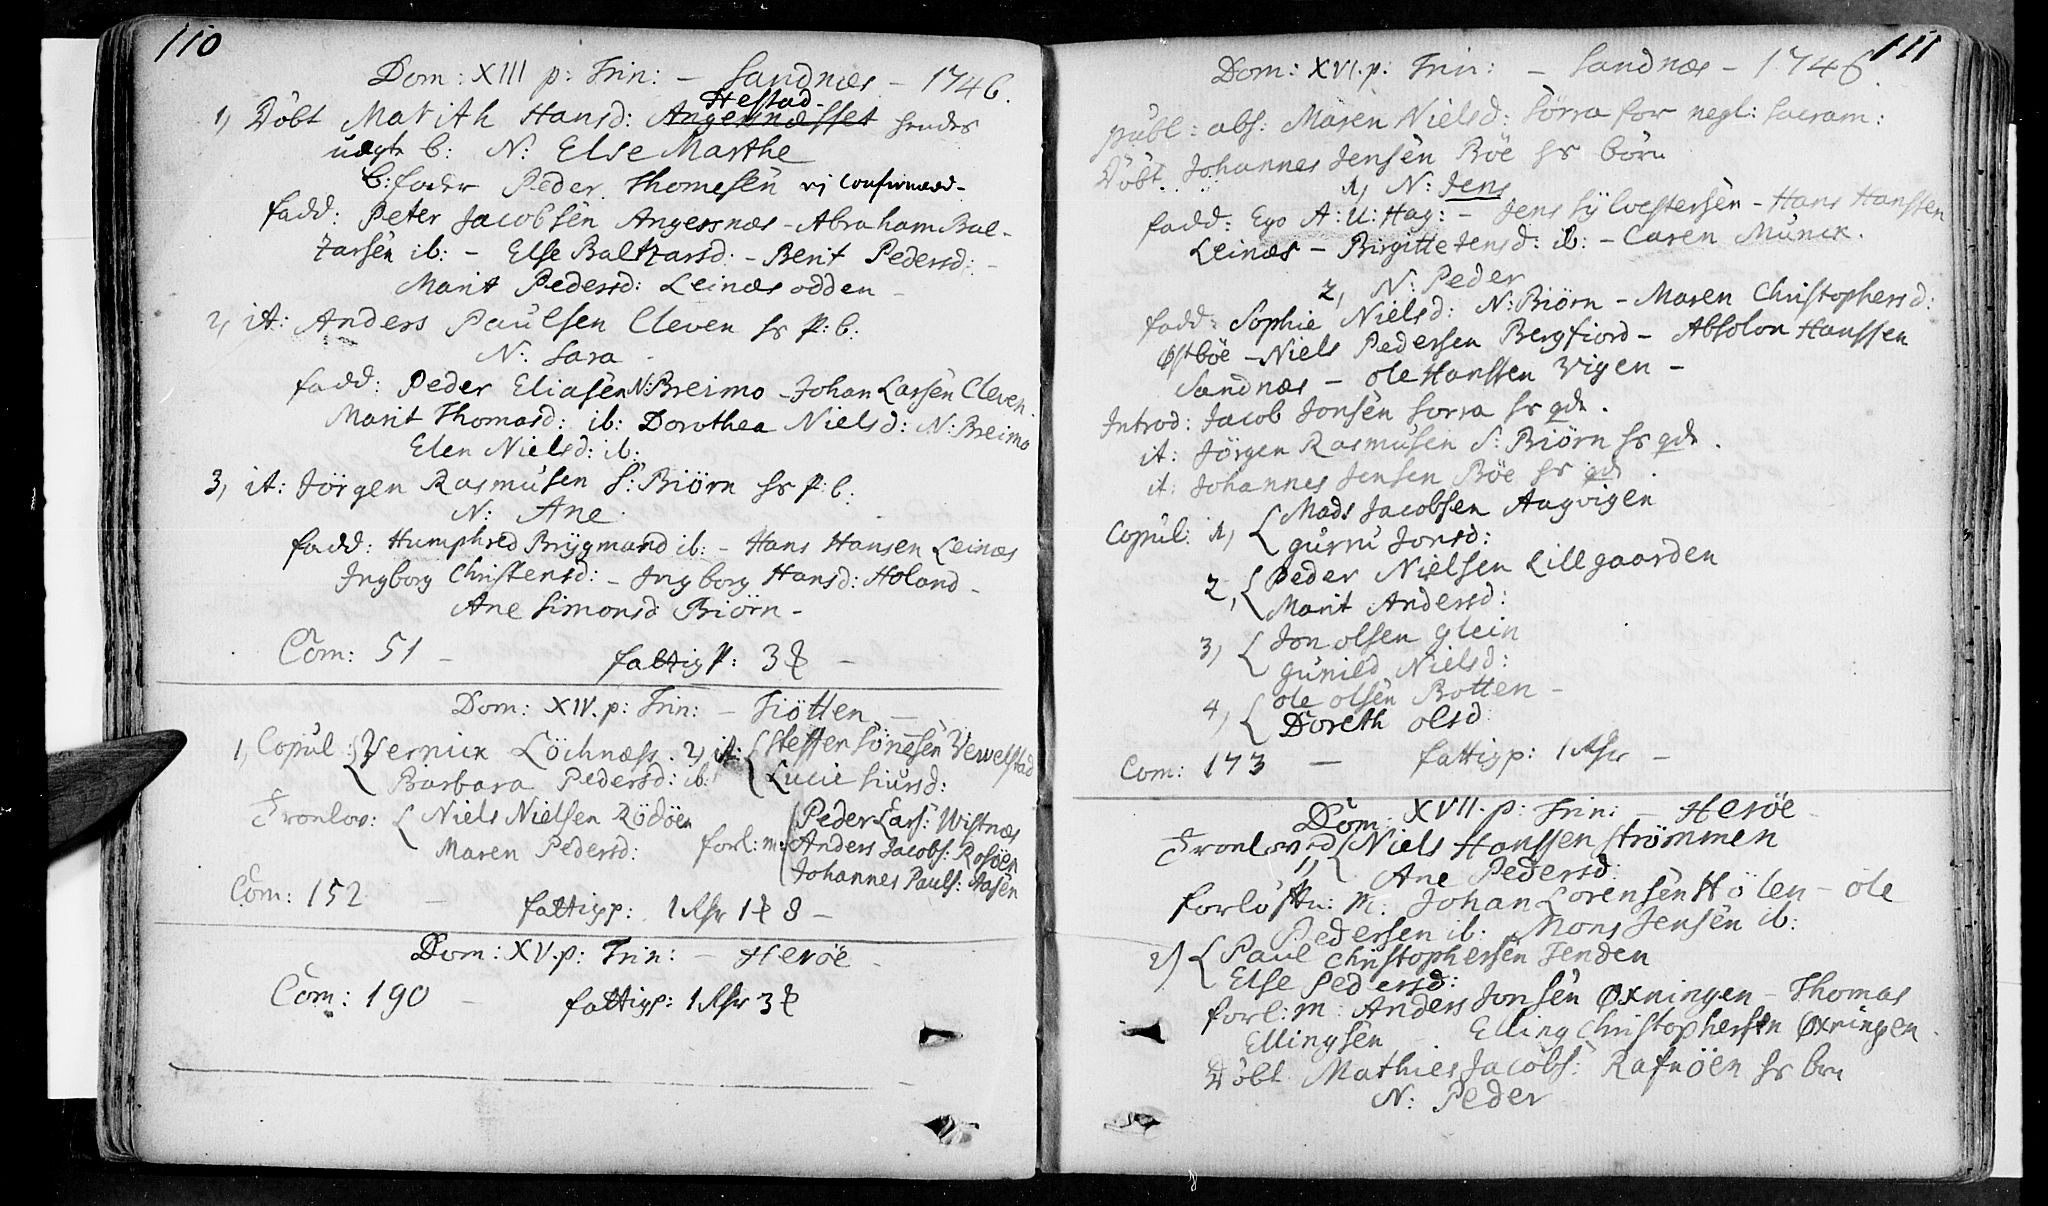 110
Dom: XIII p: Trin: – Sandnæs – 1746.
Hestad.
1, Döbt Marith Hansd: Angersnæsset hendes
uægte b: N: Else Marthe
b:fader Peder Thomesen ej confirmered.
fadd: Peter Jacobsen Angersnæs – Abraham Bal-
tzarsen ib: – Else Baltzarsd: – Berit Pedersd: –
Marit Pedersd: Leinæs odden –
2, it: Anders Paulsen Cleven hs p: b:
N: Sara –
fadd: Peder Eliasen N: Breimo – Johan Larsen Cleven.
Marit Thomasd: ib: Dorothea Nielsd: N: Breimo
Elen Nielsd: ib:
3, it: Jörgen Rasmusen S: Biörn hs p: b:
N: Ane.
fadd: Humphred Brygmand ib: – Hans Hansen Leinæs
Ingborg Christensd: – Ingborg Hansd: Holand –
Ane Simonsd Biörn –
Com: 51 – fattig p: 3 –
Dom: XIV. p: Trin: – Tiötten –
1, Copul: Vernick Löchnæss. 2, it: Steffen Sönesen Vevelstad
Barbara Pedersd: ib: Lucie Siursd:
Tronlov: Niels Nielsen Rödöen Peder Lars: Wistnæs
Maren Pedersd: forl: m: Anders Jacobs: Rosöen
Johannes Pauls: Aasen
Com: 152 – fattigp: 1 1 8 –
Dom: XV. p: Trin: – Heröe –
Com: 190 – fattigp: 1 3
111
Dom: XVI. p: Trin: – Sandnæs – 1746.
publ: abs: Maren Nielsd: Sörra for negl: sacram:
Döbt Johannes Jensen Böe hs börn
1, N: Jens
fadd: Ego A: U: Hag: – Jens Sylvestersen – Hans Hanssen
Leinæs – Birgitte Jensd: ib: – Caren Munck.
2, N: Peder
fadd: Sophie Nielsd: N: Biörn – Maren Christophersd:
Østböe – Niels Pedersen Bergfiord – Absolon Hanssen
Sandnæs – Ole Hanssen Vigen –
Introd: Jacob Jonsen Sorra hs qde.
it: Jörgen Rasmusen S: Biörn hs qde.
it: Johannes Jensen Böe hs qde.
Copul: 1, Mads Jacobsen Aagvigen
Gurru Jonsd:
2, Peder Nielsen Lillgaarden
Marit Andersd:
3, Jon Olsen Glein
Gunild Nielsd:
4, Ole Olsen Botten –
Doreth Olsd:
Com: 173 – fattigp: 1 –
Dom: XVII. p: Trin: – Heröe –
Tronloved 1, Niels Hanssen Strömmen
Ane Pedersd:
forlöftn: M: Johan Lorensen Hölen – Ole
Pedersen ib: Mons Jensen ib:
2, Paul Christophersen Tenden
Else Pedersd:
forl: m: Anders Jonsen Øxningen – Thomas
Ellingsen – Elling Christophersen Øxningen.
Döbt Mathies Jacobs: Rafnöen hs brn
N: Peder